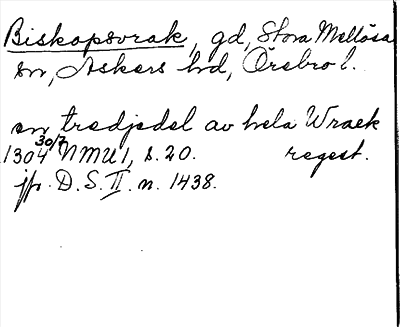 Biskopsvrak, gd, Stora Mellösa
sn, Askers hd, Örebro l.
en tredjedel av hela Wraek
1304 30/7 NMU 1, s. 20. regest.
jfr D.S. II. n. 1438.